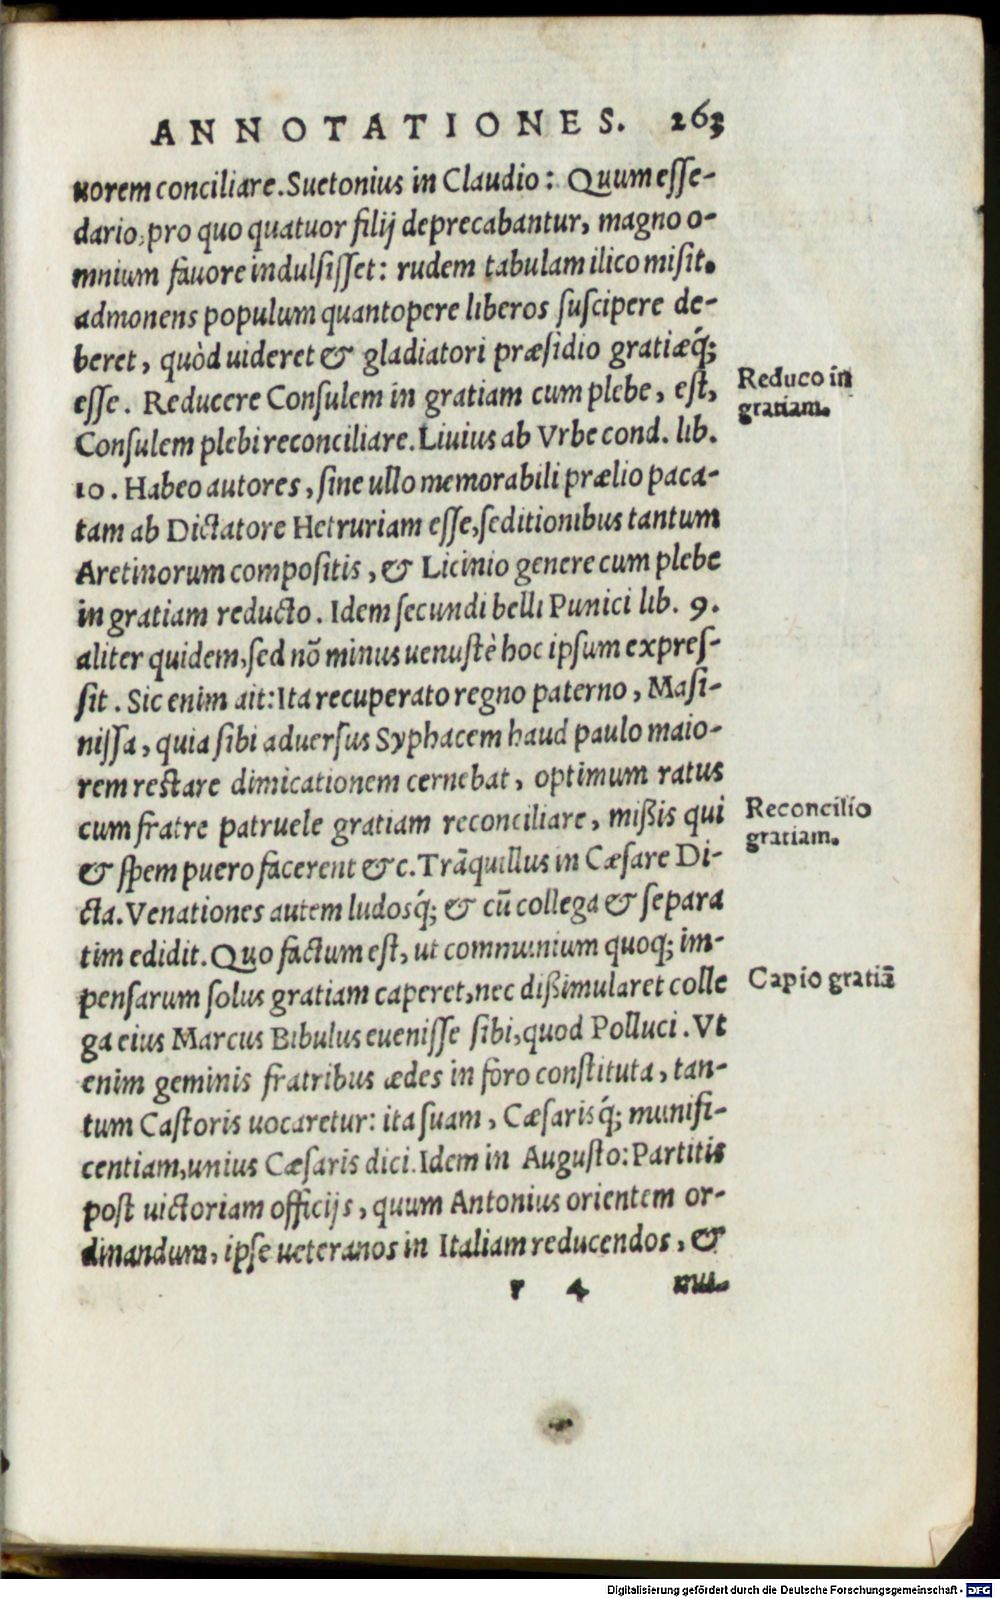 ANNOTATIONES. 263
uorem conciliare. Suetonius in Claudio: Quum eſſe-
dario, pro quo quatuor filij deprecabantur, magno o-
mnium fauore indulſiſſet: rudem tabulam ilico miſit.
admonens populum quantopere liberos ſuſcipere de-
beret, quòd uideret & gladiatori præſidio gratiæq́;
eſſe. Reducere Conſulem in gratiam cum plebe, eſt,
Reduco in
gratiam.
Conſulem plebi reconciliare. Liuius ab Vrbe cond. lib.
10. Habeo autores, ſine ullo memorabili prælio paca-
tam ab Dictatore Hetruriam eſſe, ſeditionibus tantum
Aretinorum compoſitis, & Licinio genere cum plebe
in gratiam reducto. Idem ſecundi belli Punici lib. 9.
aliter quidem, ſed nõ minus uenuſtè hoc ipſum expreſ-
ſit. Sic enim ait: Ita recuperato regno paterno, Maſi-
niſſa, quia ſibi aduerſus Syphacem haud paulo maio-
rem reſtare dimicationem cernebat, optimum ratus
cum fratre patruele gratiam reconciliare, mißis qui
Reconcilio
gratiam.
& ſpem puero facerent &c. Trãquillus in Cæſare Di-
cta. Venationes autem ludosq́; & cũ collega & ſepara
tim edidit. Quo factum eſt, ut communium quoq; im-
penſarum ſolus gratiam caperet, nec dißimularet colle
Capio gratiã
ga eius Marcus Bibulus eueniſſe ſibi, quod Polluci. Vt
enim geminis fratribus ædes in foro conſtituta, tan-
tum Caſtoris uocaretur: ita ſuam, Cæſarisq́; munifi-
centiam, unius Cæſaris dici. Idem in Auguſto: Partitis
poſt uictoriam officijs, quum Antonius orientem or-
dinandum, ipſe ueteranos in Italiam reducendos, &
r 4 mu-
Digitalisierung gefördert durch die Deutsche Forschungsgemeinschaft - DFG